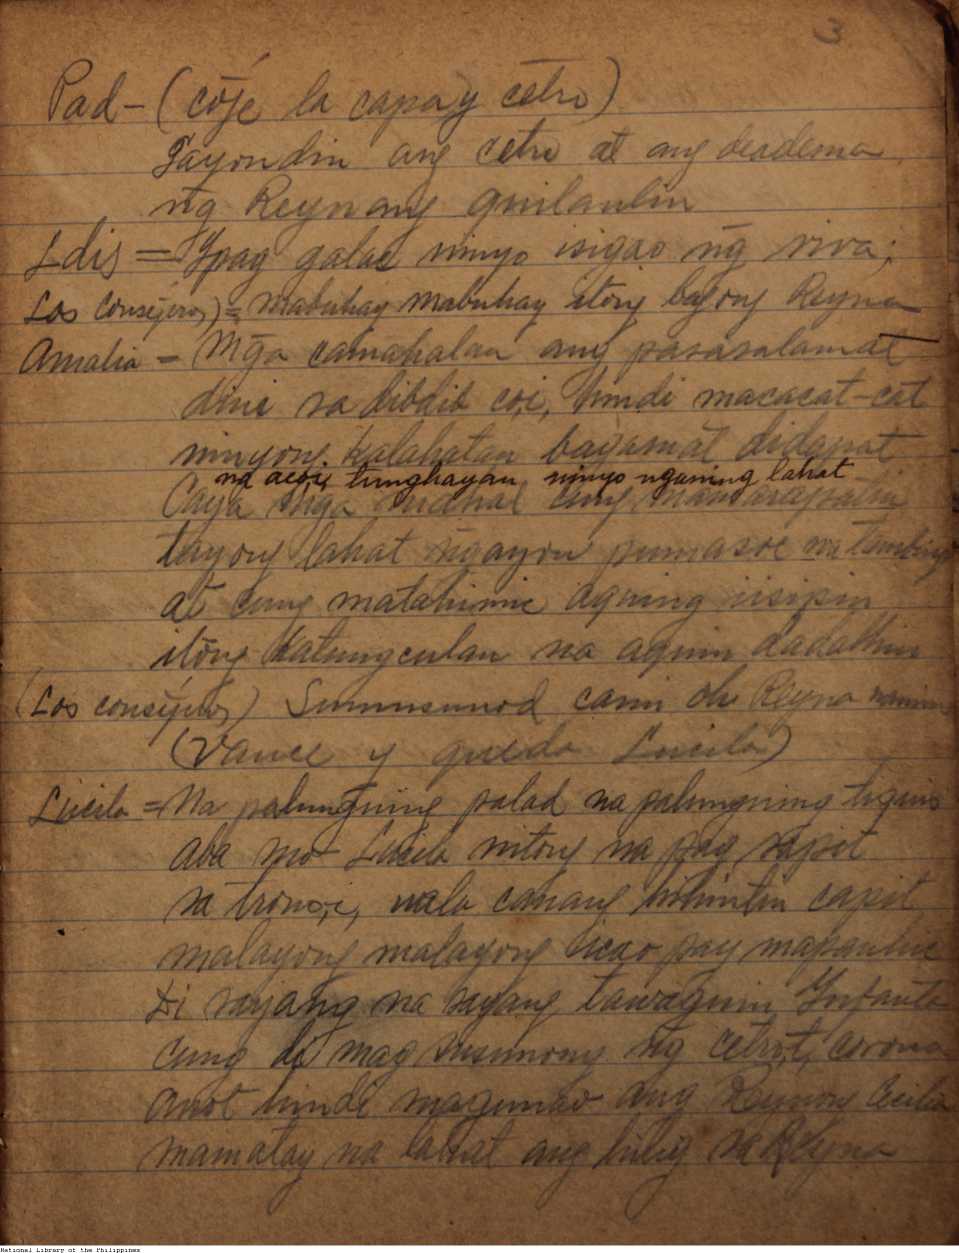 3
Pad - (coje la capa y cetro)
Tayon din ang cetro at ang deadema
ng Reynang
Ldis = Ypag galac ninyo isigao ng viva;
Los Consejeros) = mabuhay mabuhay itong bagong Reyna
Amalia = Mga camahalan ang pasasalamat
dini sa dibdib co,i, hindi macacat-cat
ninyong kalahatan bagamat didapat
na aco,i, tunghayan ninyo nganing lahat
Caya mga cung
tayong lahat ngayon pumasoc na
at cung matahimic aquing iisipin
itong Katungculan na aquin dadalhin
(Los consejeros) Sumusunod cami oh Reyna namin
(Vance y queda Lucila)
Lucila = Na palungning palad na palungning
aba mo Lucila nitong na pag sapit
sa trono,i, uala canang capit
malayong malayong icao pay mapanhic
Di sayang na sayang tawaguin Ynfanta
cung di mag susunong ng cetro,t, corona
anot hindi magunao ang Reynong Cecilia
mamatay na lahat ang hilig sa Reyna
National Library of the Philippines